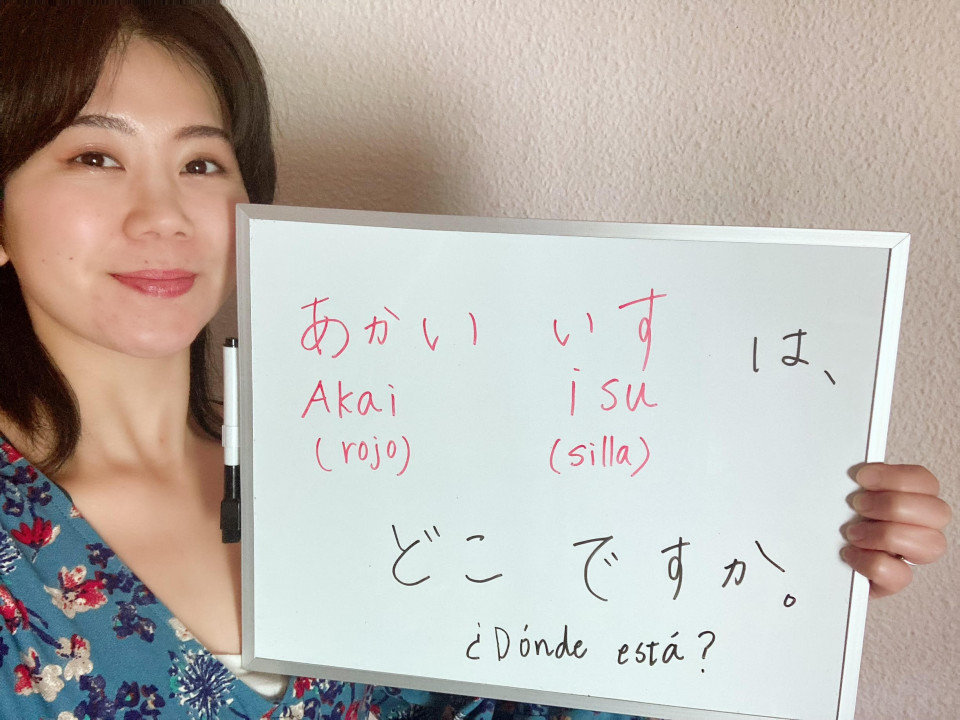 あかい いす は、
Akai isu
(rojo) (silla)
どこ ですか。
¿Dónde está?